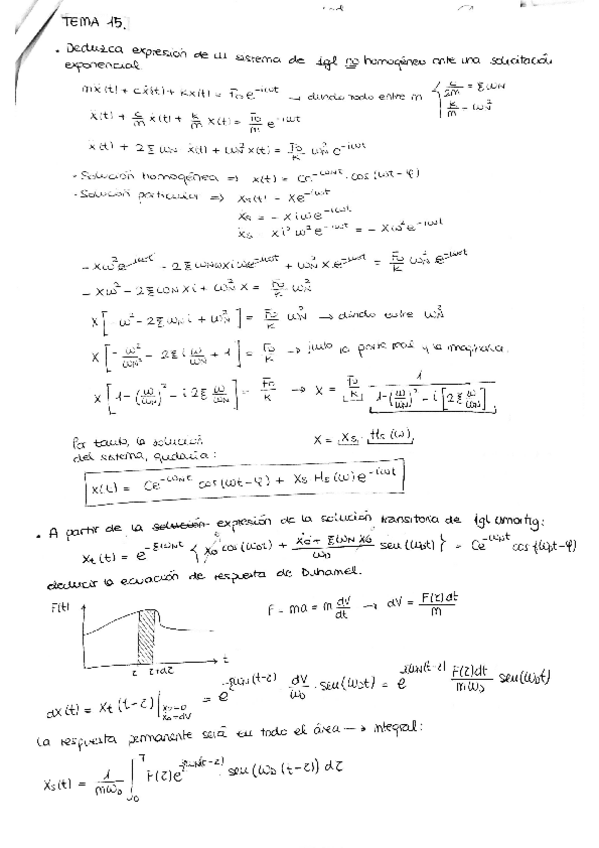 TEMA 15.
• Deduzca expresión de un sistema de 1gl no homogéneo ante una solicitación
exponencial.
mẍ(t) + cẋ(t) + kx(t) = F₀ e^(-iωt) → dividiendo todo entre m { c/2m = ξωN
k/m = ωN²
ẍ(t) + c/m ẋ(t) + k/m x(t) = F₀/m e^(-iωt)
ẍ(t) + 2ξωN ẋ(t) + ωN² x(t) = F₀/k ωN² e^(-iωt)
- Solución homogénea ⇒ x(t) = Ce^(-ωNt) · cos(ωDt - φ)
- Solución particular ⇒ xs(t) = Xe^(-iωt)
ẋs = -Xiωe^(-iωt)
ẍs = Xi²ω²e^(-iωt) = -Xω²e^(-iωt)
-Xω²e^(-iωt) - 2ξωNωXie^(-iωt) + ωN² X e^(-iωt) = F₀/k ωN² e^(-iωt)
-Xω² - 2ξωωN Xi + ωN² X = F₀/k ωN²
X[ω² - 2ξωN i + ωN²] = F₀/k ωN² → divido entre ωN²
X[-ω²/ωN² - 2ξi ω/ωN + 1] = F₀/k → junto la parte real y la imaginaria.
X[1-(ω/ωN)² - i2ξ ω/ωN] = F₀/k → X = F₀/k · 1/(1-(ω/ωN)² - i[2ξ ω/ωN])
Por tanto, la solución X = Xs · Hs(ω)
del sistema, quedaría:
x(t) = Ce^(-ωNt) cos(ωt-φ) + Xs Hs(ω)e^(-iωt)
• A partir de la solución expresión de la solución transitoria de 1gl
xt(t) = e^(-ξωNt) { x₀ cos(ωDt) + (ẋ₀ + ξωN x₀)/ωD sen(ωDt) } = Ce^(-ωNt) cos(ωDt-φ)
deducir la ecuación de respuesta de Duhamel.
F(t)
F = ma = m dV/dt → dV = F(τ)dτ/m
τ τ+dτ t
dx(t) = xt(t-τ)| x₀=0 ẋ₀=dV = e^(-ξωN(t-τ)) dV/ωD · sen(ωDt) = e^(-ξωN(t-τ)) F(τ)dτ/mωD sen(ωDt)
La respuesta permanente será en todo el área → integral:
xs(t) = 1/mωD ∫₀^T F(τ)e^(-ξωN(t-τ)) · sen(ωD(t-τ)) dτ